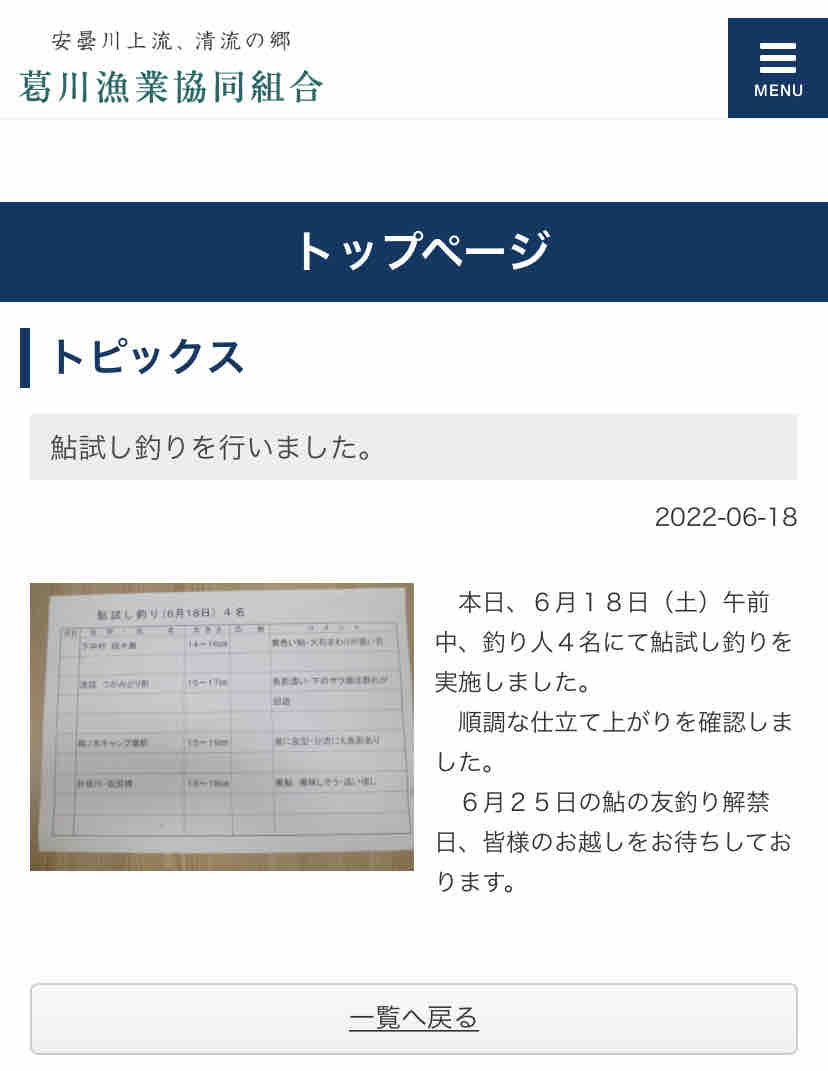 安曇川上流、清流の郷
葛川漁業協同組合
MENU
トップページ
トピックス
鮎試し釣りを行いました。
2022-06-18
鮎試し釣り(6月18日) 4名
本日、６月１８日（土）午前
中、釣り人４名にて鮎試し釣りを
実施しました。
順調な仕立て上がりを確認しま
した。
６月２５日の鮎の友釣り解禁
日、皆様のお越しをお待ちしてお
ります。
一覧へ戻る